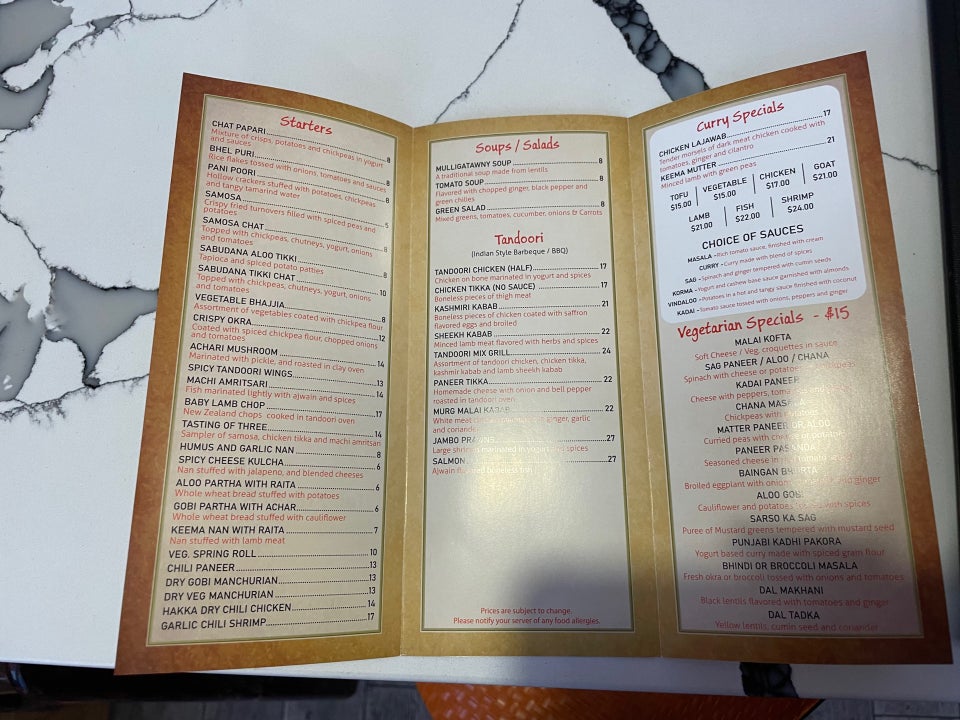 Starters
CHAT PAPARI 8
Mixture of crisps, potatoes and chickpeas in yogurt
and sauces
BHEL PURI 8
Rice flakes tossed with onions, tomatoes and sauces
PANI POORI 8
Hollow crackers stuffed with potatoes, chickpeas
and tangy tamarind water
SAMOSA 5
Crispy fried turnovers filled with spiced peas and
potatoes
SAMOSA CHAT 8
Topped with chickpeas, chutneys, yogurt, onions
and tomatoes
SABUDANA ALOO TIKKI 8
Tapioca and spiced potato patties
SABUDANA TIKKI CHAT 10
Topped with chickpeas, chutneys, yogurt, onions
and tomatoes
VEGETABLE BHAJJIA 8
Assortment of vegetables coated with chickpea flour
CRISPY OKRA 12
Coated with spiced chickpea flour, chopped onions
and tomatoes
ACHARI MUSHROOM 14
Marinated with pickle, and roasted in clay oven
SPICY TANDOORI WINGS 13
MACHI AMRITSARI 14
Fish marinated lightly with ajwain and spices
BABY LAMB CHOP 17
New Zealand chops cooked in tandoori oven
TASTING OF THREE 14
Sampler of samosa, chicken tikka and machi amritsari
HUMUS AND GARLIC NAN 8
SPICY CHEESE KULCHA 6
Nan stuffed with jalapeno, and blended cheeses
ALOO PARTHA WITH RAITA 6
Whole wheat bread stuffed with potatoes
GOBI PARTHA WITH ACHAR 6
Whole wheat bread stuffed with cauliflower
KEEMA NAN WITH RAITA 7
Nan stuffed with lamb meat
VEG. SPRING ROLL 10
CHILI PANEER 13
DRY GOBI MANCHURIAN 13
DRY VEG MANCHURIAN 13
HAKKA DRY CHILI CHICKEN 14
GARLIC CHILI SHRIMP 17
Soups / Salads
MULLIGATAWNY SOUP 8
A traditional soup made from lentils
TOMATO SOUP 8
Flavored with chopped ginger, black pepper and
green chilies
GREEN SALAD 8
Mixed greens, tomatoes, cucumber, onions & Carrots
Tandoori
(Indian Style Barbeque / BBQ)
TANDOORI CHICKEN (HALF) 17
Chicken on bone marinated in yogurt and spices
CHICKEN TIKKA (NO SAUCE) 17
Boneless pieces of thigh meat
KASHMIRI KABAB 21
Boneless pieces of chicken coated with saffron
flavored eggs and broiled
SHEEKH KABAB 22
Minced lamb meat flavored with herbs and spices
TANDOORI MIX GRILL 24
Assortment of tandoori chicken, chicken tikka,
kashmir kabab and lamb sheekh kabab
PANEER TIKKA 22
Homemade cheese with onion and bell pepper
roasted in tandoori oven
MURG MALAI KABAB 22
White meat ginger, garlic
and coriander
JAMBO PRAONS 27
Large shrimps marinated in yogurt and spices
SALMON 27
Ajwain flavored boneless fish
Prices are subject to change.
Please notify your server of any food allergies.
Curry Specials
CHICKEN LAJAWAB 17
Tender morsels of dark meat chicken cooked with
tomatoes, ginger and cilantro
KEEMA MUTTER 21
Minced lamb with green peas
TOFU VEGETABLE CHICKEN GOAT
$15.00 $15.00 $17.00 $21.00
LAMB FISH SHRIMP
$21.00 $22.00 $24.00
CHOICE OF SAUCES
MASALA - Rich tomato sauce, finished with cream
CURRY - Curry made with blend of spices
SAG - Spinach and ginger tempered with cumin seeds
KORMA - Yogurt and cashew base sauce garnished with almonds
VINDALOO - Potatoes in a hot and tangy sauce finished with coconut
KADAI - Tomato sauce tossed with onions, peppers and ginger
Vegetarian Specials - $15
MALAI KOFTA
Soft Cheese / Veg. croquettes in sauce
SAG PANEER / ALOO / CHANA
Spinach with cheese or potatoes chickpeas
KADAI PANEER
Cheese with peppers,
CHANA MASALA
Chickpeas with
MATTER PANEER OR ALOO
Curried peas with cheese or potatoes
PANEER PASANDA
Seasoned cheese in sauce
BAINGAN BHURTA
Broiled eggplant with onion and ginger
ALOO GOBI
Cauliflower and potatoes with spices
SARSO KA SAG
Puree of Mustard greens tempered with mustard seed
PUNJABI KADHI PAKORA
Yogurt based curry made with spiced gram flour
BHINDI OR BROCCOLI MASALA
Fresh okra or broccoli tossed with onions and tomatoes
DAL MAKHANI
Black lentils flavored with tomatoes and ginger
DAL TADKA
Yellow lentils, cumin seed and coriander